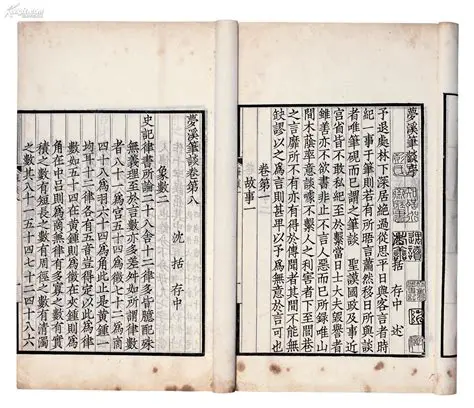 夢溪筆談序
沈括 存中 述
予退處林下深居絕過從思平日與客言者時
紀一事于筆則若有所晤言蕭然移日所與談
者唯筆硯而已謂之筆談 聖謨國政及事近
宮省皆不敢私紀至於繫當日士大夫毀譽者
雖善亦不欲書非止不言人惡而已所錄唯山
間木蔭率意談噱不繫人之利害者下至閭巷
之言靡所不有亦有得於傳聞者其間不能無
缺謬以之為言則甚卑以予為無意於言可也
卷第一
故事一
夢溪筆談卷第八
沈括 存中
象數二
史記律書所論二十八舍十二律多皆臆配殊
無義理至於言數亦多差舛如所謂律數
者八十一為宮五十四為徵七十二為商
四十八為羽六十四為角此止是黃鍾一
均耳十二律各有五音豈得定以此為律
數如五十四在黃鍾則為徵在夾鍾則為
角在中呂則為商兼律有多寡之數有實
積之數有短長之數有周徑之數有清濁
之數其八十一五十四七十二四十八六